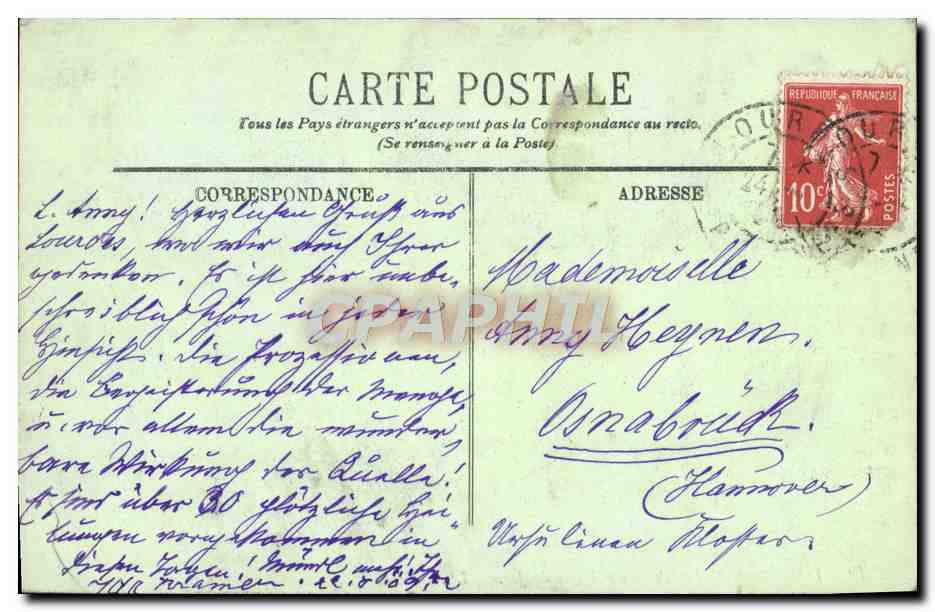 CARTE POSTALE
Tous les Pays étrangers n'acceptent pas la Correspondance au recto.
(Se renseigner à la Poste)
CORRESPONDANCE
L. Anny! Herzlichen Gruß aus
Lourdes, wo wir auch Ihrer
gedenken. Es ist hier unbe-
schreiblich schön in jeder
Hinsicht. Die Prozessionen,
die Begeisterung der Menge,
u. vor allem die wunder
bare Wirkung der Quelle!
Es sind über 30 plötzliche Hei-
lungen vorgekommen in
diesen Tagen! Mündl.
ADRESSE
Mademoiselle
Anny Heynen.
Osnabrück.
(Hannover)
Ursulinen Kloster.
REPUBLIQUE FRANÇAISE
10c
POSTES
CPAPHIL